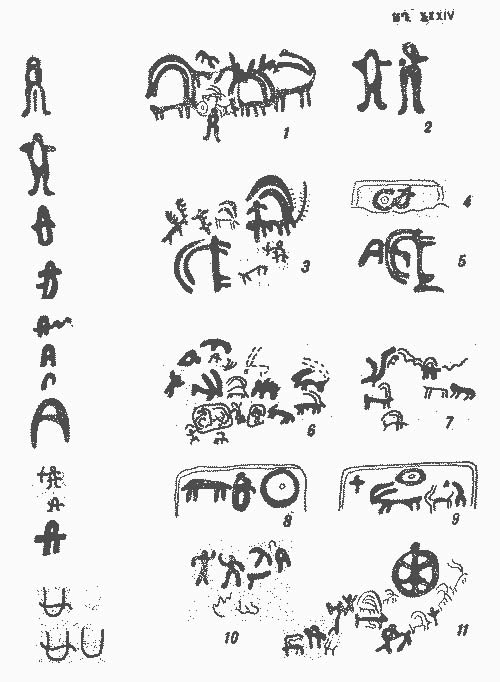 XXXIV
1
2
3
4
5
6
7
8
9
10
11